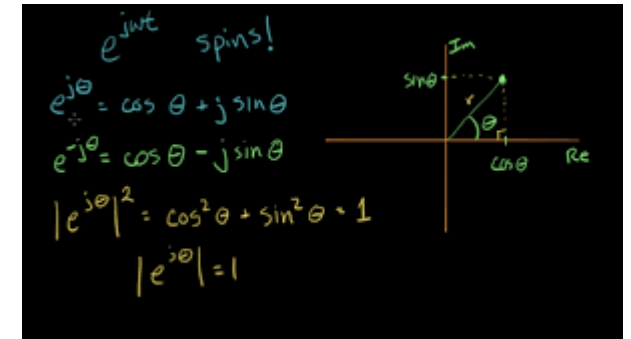 e^jωt spins!
e^jθ = cos θ + j sin θ
e^-jθ = cos θ - j sin θ
|e^jθ|² = cos² θ + sin² θ = 1
|e^jθ| = 1
Im
sinθ
r
θ
cosθ
Re